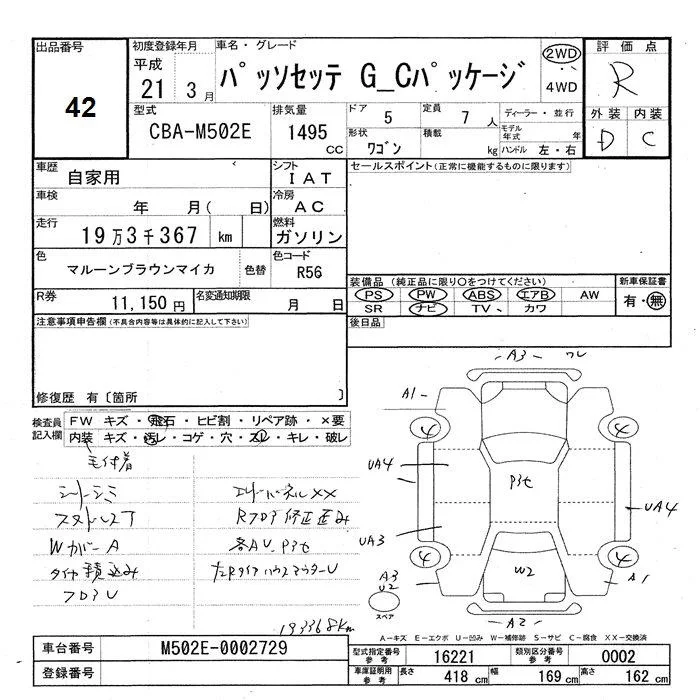 出品番号
42
初度登録年月
平成
21 3月
車名・グレード
パッソセッテ G_Cパッケージ
2WD
4WD
評価点
R
型式
CBA-M502E
排気量
1495 CC
ドア
5
定員
7 人
ディーラー・並行
形状
ワゴン
積載
kg
モデル年式
年
ハンドル 左・右
外装 内装
D C
車歴
自家用
シフト
IAT
セールスポイント(正常に機能するものに限ります)
車検
年 月( 日)
冷房
AC
走行
19万3千367 km
燃料
ガソリン
色
マルーンブラウンマイカ
色替
色コード
R56
装備品(純正品に限り○をつけてください)
新車保証書
PS PW ABS エアB AW
SR ナビ TV、カワ
有・無
R券
11,150円
名変通知期限
月 日
後日品
注意事項申告欄(不具合内容等は具体的に記入して下さい)
修復歴 有〔箇所 〕
検査員記入欄
FW キズ・飛石・ヒビ割・リペア跡・×要
内装 キズ・汚レ・コゲ・穴・スレ・キレ・破レ
毛付着
シートシミ
Wカバー A
タイヤ積込み
フロアU
エンドパネルXX
Rフロア修正歪み
各AU、P3セ
193368Km
A3
A1
4
4
UA4
P3セ
UA4
UA3
4
4
W2
A3
U2
A1
スペア
A2
A-キズ E-エクボ U-凹み W-補修跡 S-サビ C-腐食 XX-交換済
車台番号
M502E-0002729
型式指定番号 参考
16221
類別区分番号 参考
0002
登録番号
車庫証明用 参考
長さ
418 cm
幅
169 cm
高さ
162 cm